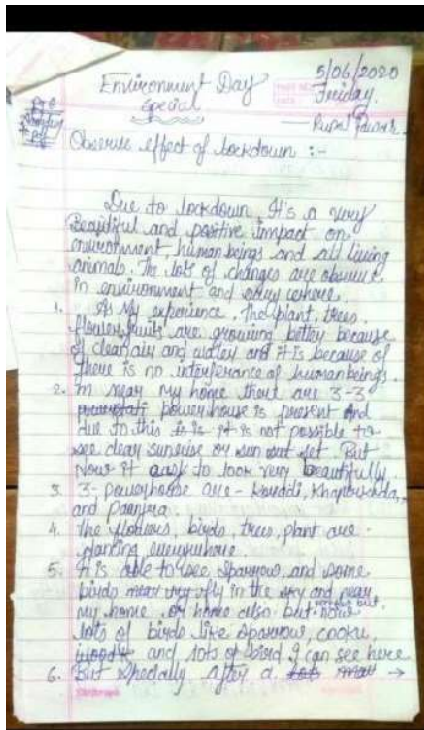 5/06/2020
Environment Day
Friday.
Special
Observe effect of lockdown :-
Due to lockdown It's a very
Beautiful and positive impact on
environment, human beings and all living
animals. The lots of changes are observe
in environment and every where.
1. As My experience, the plant, trees,
flower, fruits are growing better because
of clean air and water and it is because of
there is no interferance of human beings.
2. In near my home there are 3-3
powerhouse is present and
due to this it is not possible to
see clear sunrise or sun set. But
Now it to look very beautifully.
3. 3-powerhouse are - Koradi, Khaperkheda,
and
4. The flowers, birds, trees, plant are
dancing everywhere.
5. It is able to see sparrow, and some
birds fly in the sky and near
my home or home also but now
lots of birds like sparrow,
and lots of bird I can see here
6. But specially After a →